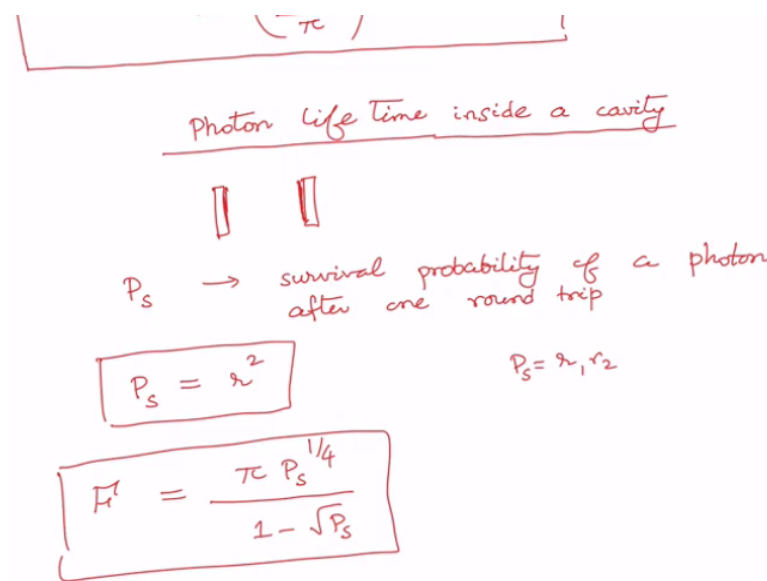 π
Photon Life Time inside a cavity
P_s → survival probability of a photon
after one round trip
P_s = r^2
P_s = r_1 r_2
F = π P_s^{1/4} / (1 - √P_s)